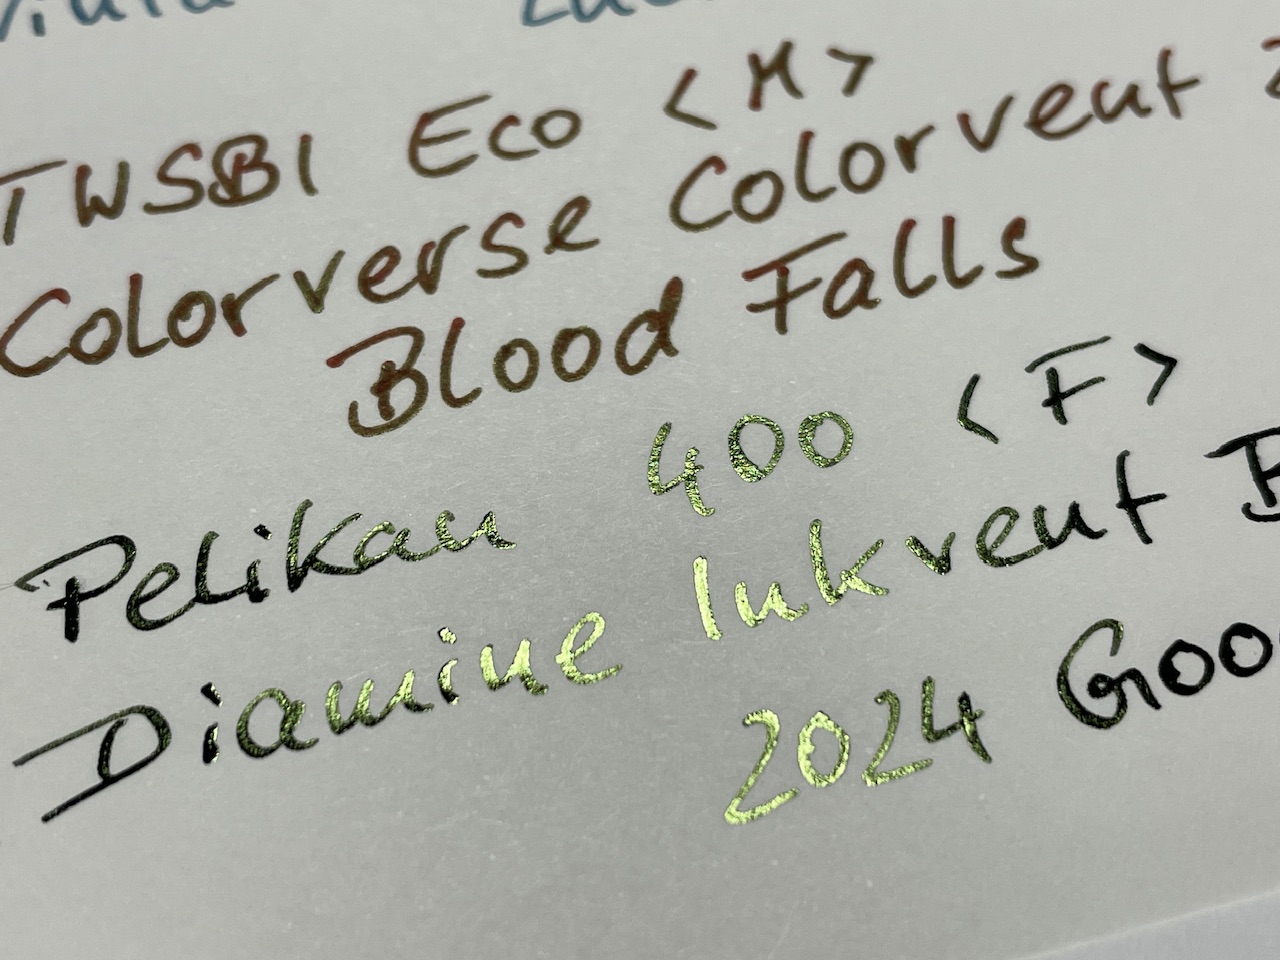 TWSBI Eco <M>
Colorverse Colorvent
Blood Falls
Pelikan 400 <F>
Diamine Inkvent
2024 Goo